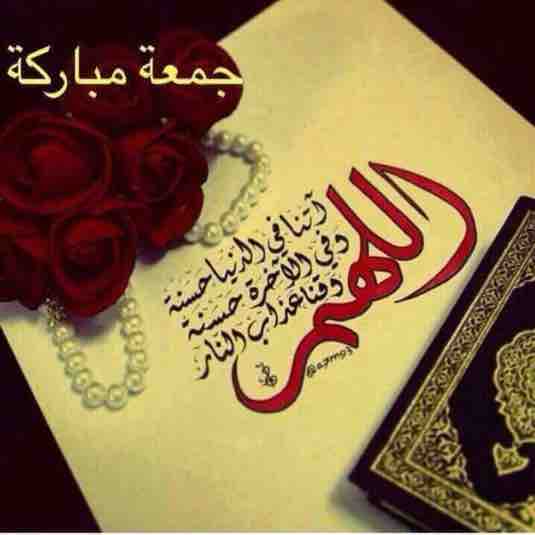 جمعة مباركة
اللهم
آتنا في الدنيا حسنة
وفي الآخرة حسنة
وقنا عذاب النار